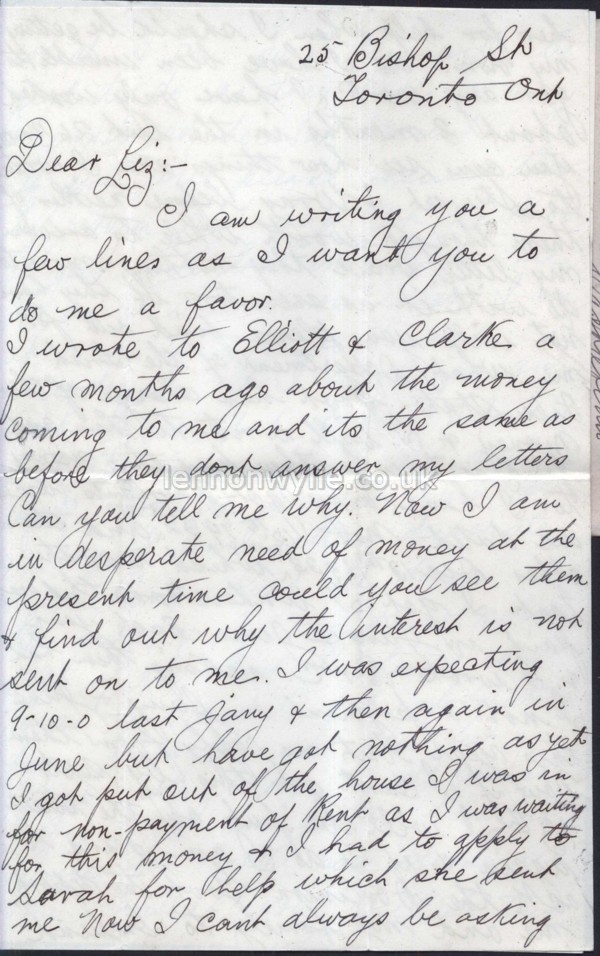 25 Bishop St
Toronto Ont
Dear Liz:-
I am writing you a
few lines as I want you to
do me a favor.
I wrote to Elliott & Clarke a
few months ago about the money
coming to me and its the same as
before they dont answer my letters
lennonwylie.co.uk
Can you tell me why. Now I am
in desperate need of money at the
present time could you see them
& find out why the interest is not
sent on to me. I was expecting
9-10-0 last Jany & then again in
June but have got nothing as yet
I got put out of the house I was in
for non-payment of Rent as I was waiting
for this money & I had to apply to
Sarah for help which she sent
me Now I cant always be asking